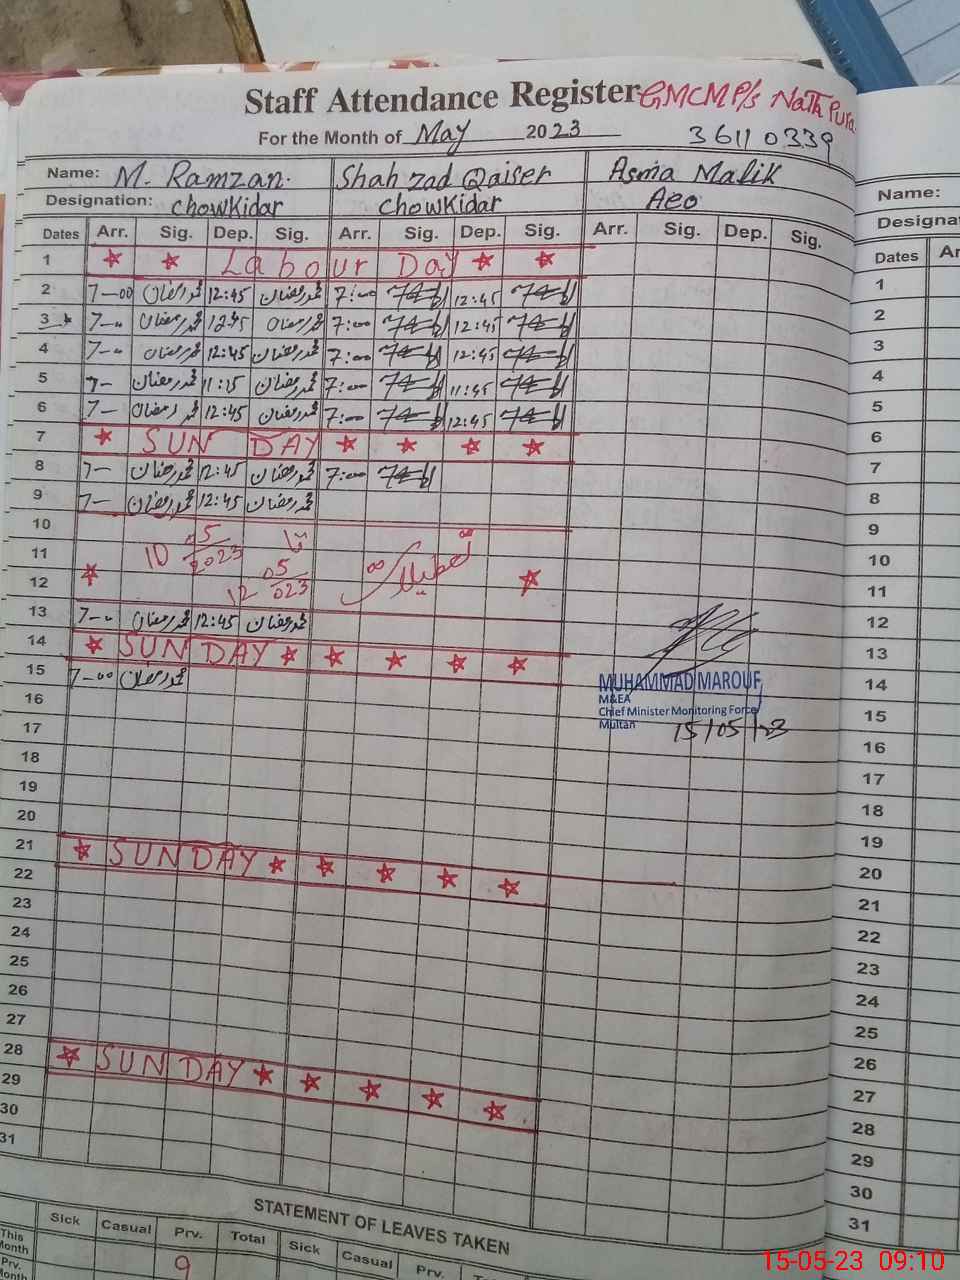 Staff Attendance Register GMCMP/s Nath Pura
For the Month of May 2023 36110339
Name: M. Ramzan. Shahzad Qaiser Asma Malik
Designation: Chowkidar Chowkidar Aeo
Dates Arr. Sig. Dep. Sig. Arr. Sig. Dep. Sig. Arr. Sig. Dep. Sig.
1 Labour Day
2 7-00 محمد رمضان 12:45 محمد رمضان 7:00 12:45
3 7-00 محمد رمضان 12:45 محمد رمضان 7:00 12:45
4 7-00 محمد رمضان 12:45 محمد رمضان 7:00 12:45
5 7- محمد رمضان محمد رمضان 7:00 11:45
6 7- محمد رمضان 12:45 محمد رمضان 7:00 12:45
7 SUNDAY
8 7- محمد رمضان 12:45 محمد رمضان 7:00
9 7- محمد رمضان 12:45 محمد رمضان
10 10 05/2023 تا
11 تعطیلات
12 12 05/023
13 7-00 محمد رمضان 12:45 محمد رمضان
14 SUNDAY
15 7-00 محمد رمضان
16
17
18
19
20
21 SUNDAY
22
23
24
25
26
27
28 SUNDAY
29
30
31
MUHAMMAD MAROUF
M&EA
Chief Minister Monitoring Force
Multan
15/05/23
STATEMENT OF LEAVES TAKEN
Sick Casual Prv. Total Sick Casual Prv.
This Month
Prv. 9
Name:
Dates
1
2
3
4
5
6
7
8
9
10
11
12
13
14
15
16
17
18
19
20
21
22
23
24
25
26
27
28
29
30
31
15-05-23 09:10